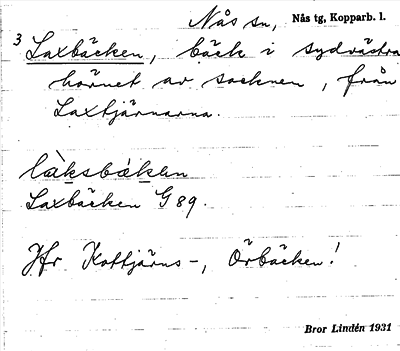 Nås sn, Nås tg, Kopparb. l.
3 Laxbäcken, bäck i sydvästra
hörnet av socknen, från
Laxtjärnarna.
làksbä́kɛn
Laxbäcken G 89.
Jfr Kottjärns-, Örbäcken!
Bror Lindén 1931